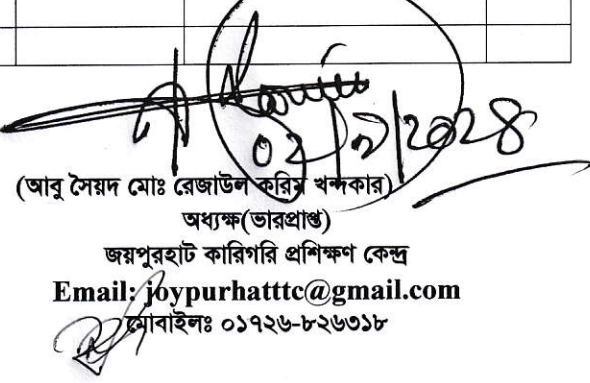 (আবু সৈয়দ মোঃ রেজাউল করিম খন্দকার)
অধ্যক্ষ(ভারপ্রাপ্ত)
জয়পুরহাট কারিগরি প্রশিক্ষণ কেন্দ্র
Email: joypurhatttc@gmail.com
মোবাইলঃ ০১৭২৬-৮২৬৩১৮